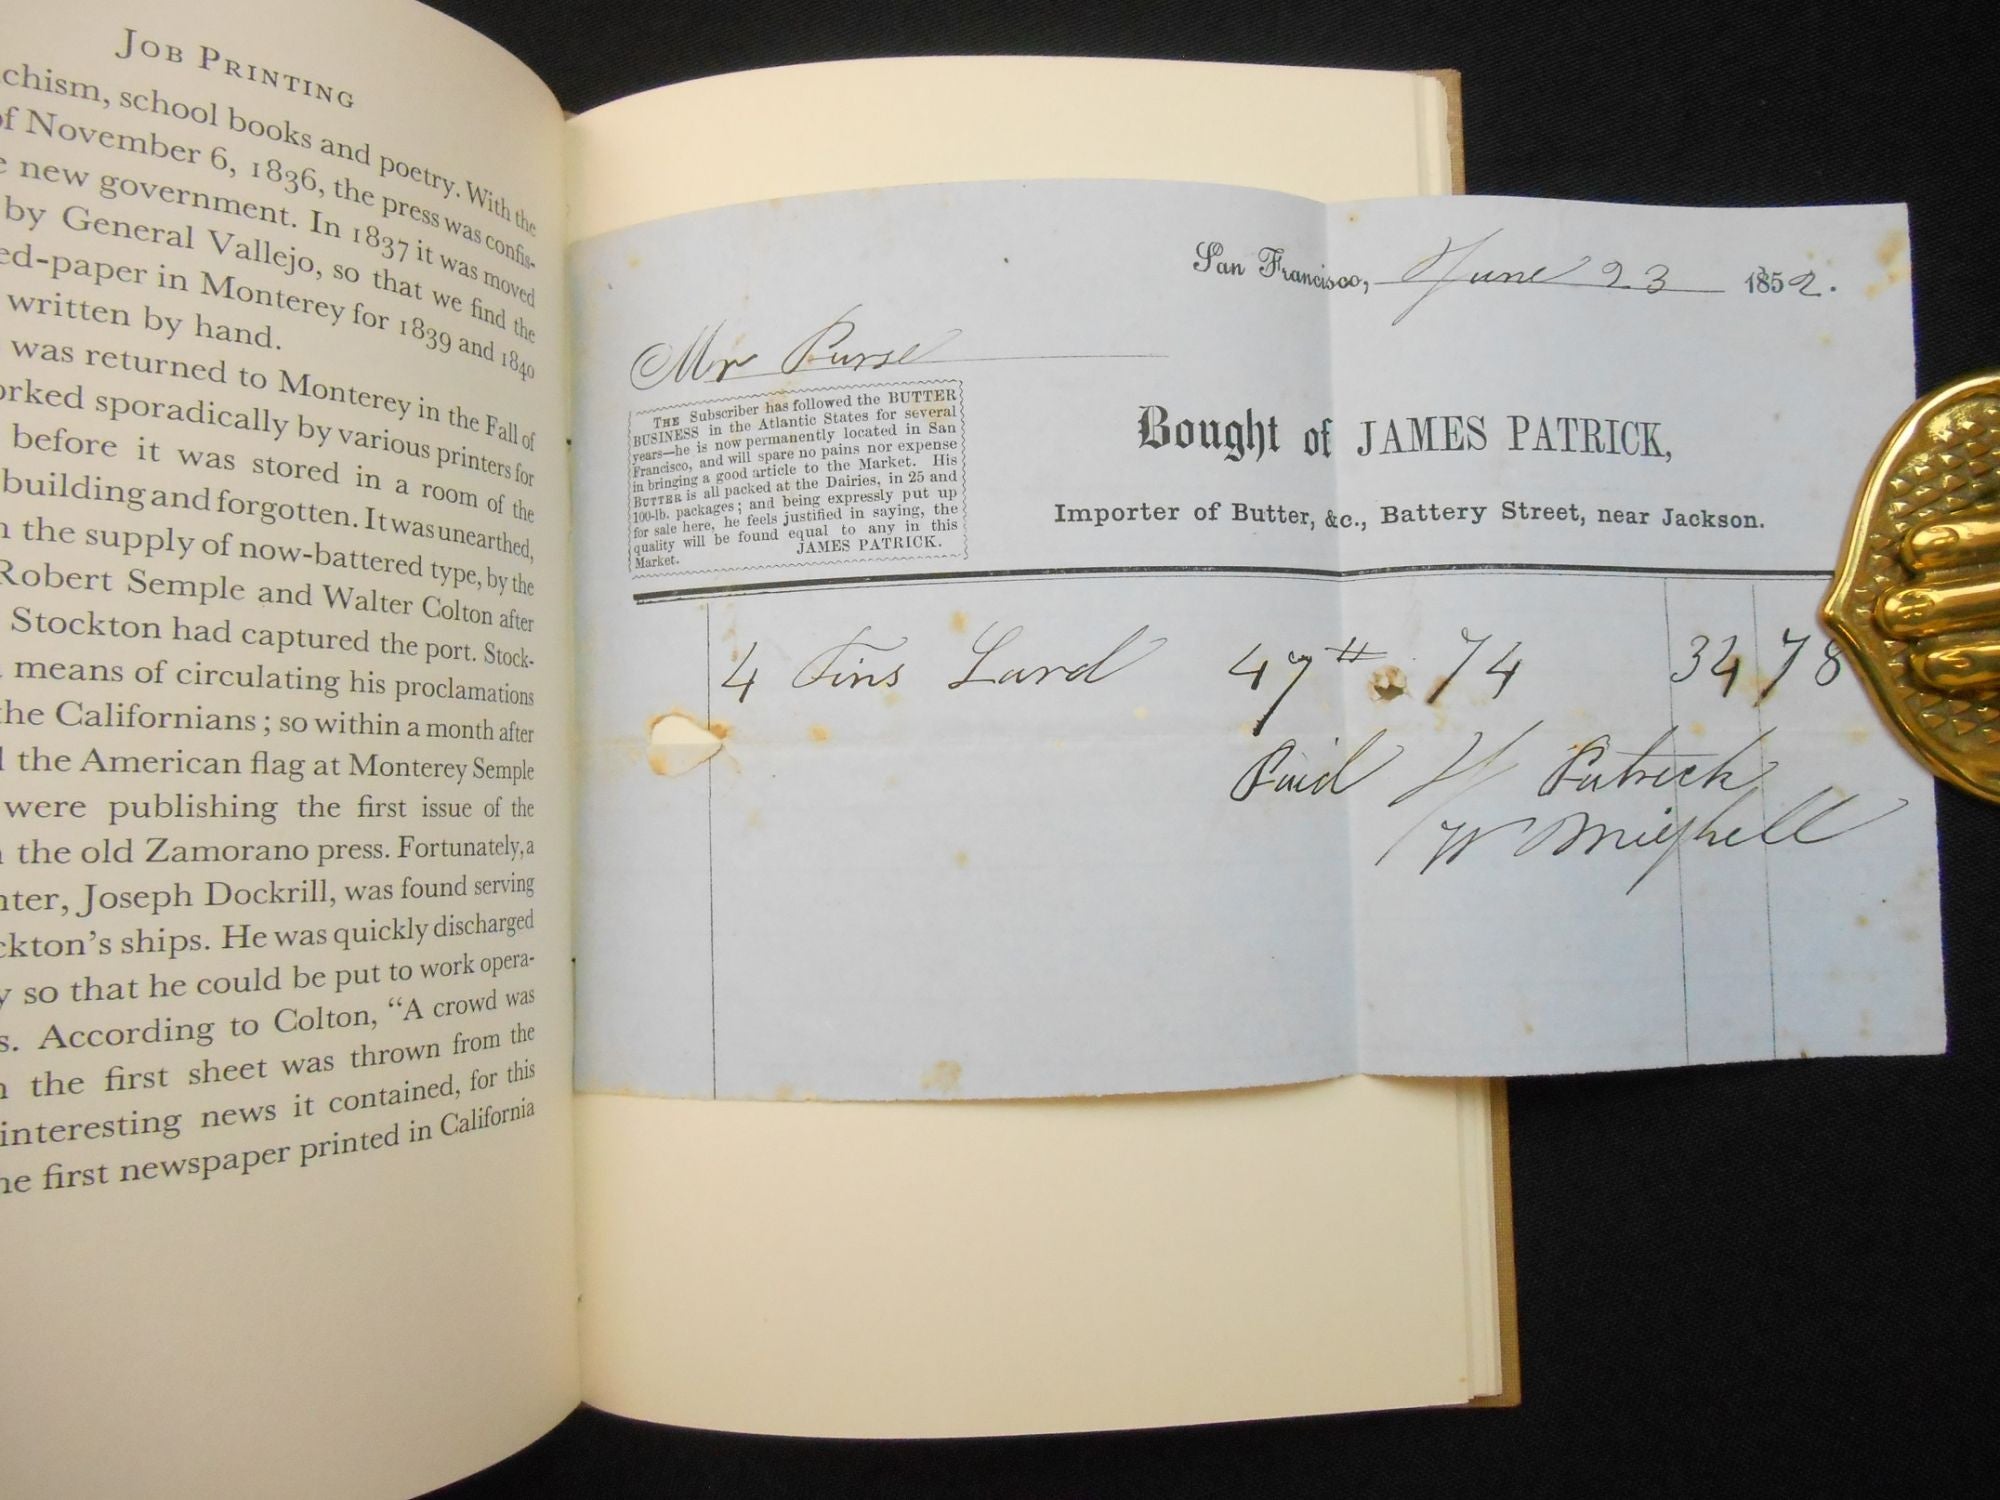 JOB PRINTING
chism, school books and poetry. With the
of November 6, 1836, the press was confis-
e new government. In 1837 it was moved
by General Vallejo, so that we find the
ed-paper in Monterey for 1839 and 1840
written by hand.
was returned to Monterey in the Fall of
orked sporadically by various printers for
before it was stored in a room of the
building and forgotten. It was unearthed,
h the supply of now-battered type, by the
Robert Semple and Walter Colton after
Stockton had captured the port. Stock-
means of circulating his proclamations
the Californians; so within a month after
the American flag at Monterey Semple
were publishing the first issue of the
the old Zamorano press. Fortunately, a
nter, Joseph Dockrill, was found serving
ckton's ships. He was quickly discharged
y so that he could be put to work opera-
s. According to Colton, "A crowd was
the first sheet was thrown from the
interesting news it contained, for this
he first newspaper printed in California
San Francisco, June 23 1852.
Mr Purse
THE Subscriber has followed the BUTTER
BUSINESS in the Atlantic States for several
years—he is now permanently located in San
Francisco, and will spare no pains nor expense
in bringing a good article to the Market. His
BUTTER is all packed at the Dairies, in 25 and
100-lb. packages; and being expressly put up
for sale here, he feels justified in saying, the
quality will be found equal to any in this
Market. JAMES PATRICK.
Bought of JAMES PATRICK,
Importer of Butter, &c., Battery Street, near Jackson.
4 Tins Lard 47# 74 34 78
Paid J Patrick
W Mighell